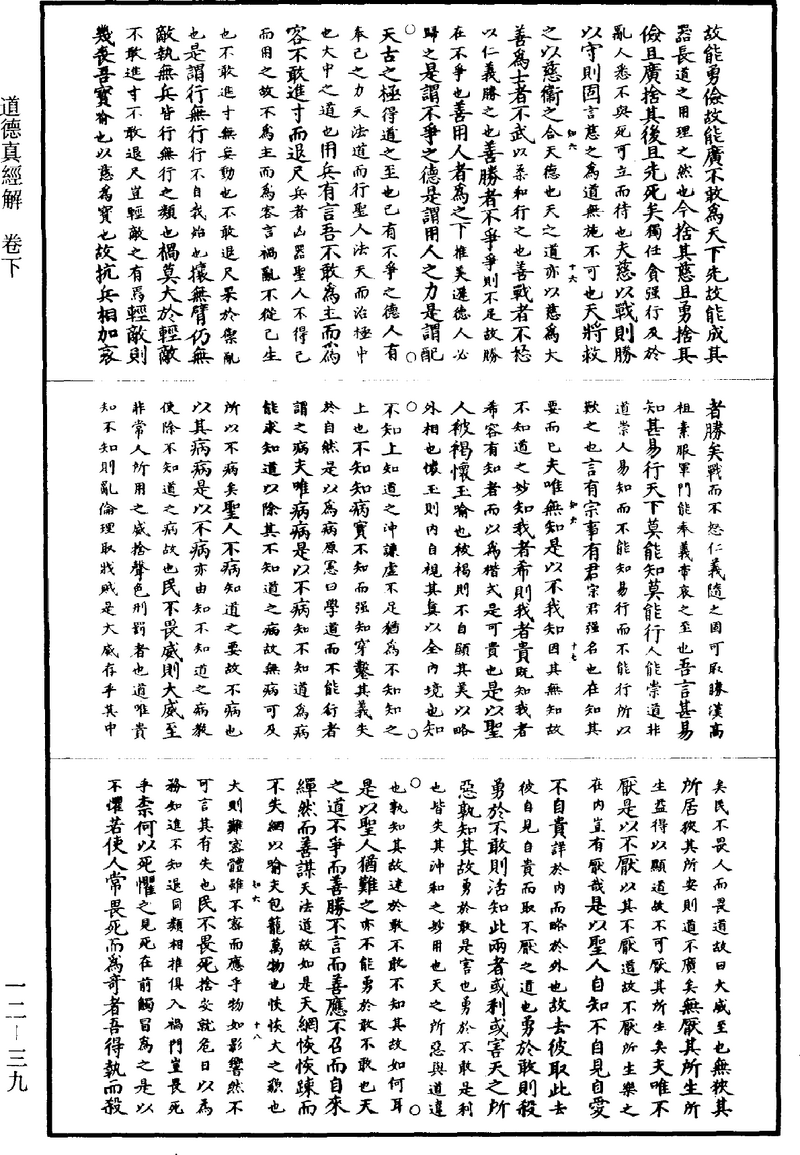 故能勇儉故能廣不敢為天下先故能成其
器長道之用理之然也今捨其慈且勇捨其
儉且廣捨其後且先死矣獨任貪强行及於
亂人悉不與死可立而待也夫慈以戰則勝
以守則固言慈之為道無施不可也天將救
之以慈衛之合天德也天之道亦以慈為大
善為士者不武以柔和行之也善戰者不怒
以仁義勝之也善勝者不爭爭則不足故勝
在不爭也善用人者為之下推美遜德人必
歸之是謂不爭之德是謂用人之力是謂配
天古之極得道之至也已有不爭之德人有
奉己之力天法道而行聖人法天而治極中
也大中之道也用兵有言吾不敢為主而為
客不敢進寸而退尺兵者凶器聖人不得已
而用之故不為主而為客言禍亂不從己生
也不敢進寸無妄動也不敢退尺果於禦亂
也是謂行無行行不自我始也攘無臂仍無
敵執無兵皆行無行之類也禍莫大於輕敵
不敢進寸不敢退尺豈輕敵之有焉輕敵則
幾喪吾寶喻也以慈為寶也故抗兵相加哀
者勝矣戰而不怒仁義隨之固可取勝漢高
祖素服軍門能奉義帝哀之至也吾言甚易
知甚易行天下莫能知莫能行人能崇道非
道崇人易知而不能知易行而不能行所以
歎之也言有宗事有君宗君强名也在知其
要而已夫唯無知是以不我知因其無知故
不知道之妙知我者希則我者貴既知我者
希容有知者而以為楷式是可貴也是以聖
人被褐懷玉喻也被褐則不自顯其美以略
外相也懷玉則內自視其真以全內境也知
不知上知道之沖謙虛不足猶為不知知之
上也不知知病實不知而强知穿鑿其義失
於自然是以為病原憲曰學道而不能行者
謂之病夫唯病病是以不病知不知道為病
能求知道以除其不知道之病故無病可及
所以不病矣聖人不病知道之要故不病也
以其病病是以不病亦由知不知道之病教
使除不知道之病故也民不畏威則大威至
非常人所用之威捨聲色刑罰者也道唯貴
知不知則亂倫理取戕賊是大威存乎其中
矣民不畏人而畏道故曰大威至也無狹其
所居狹其所安則道不廣矣無厭其所生所
生益得以顯道故不可厭其所生矣夫唯不
厭是以不厭以其不厭道故不厭所生樂之
在內豈有厭哉是以聖人自知不自見自愛
不自貴詳於內而略於外也故去彼取此去
彼自見自貴而取不厭之道也勇於敢則殺
勇於不敢則活知此兩者或利或害天之所
惡孰知其故勇於敢是害也勇於不敢是利
也皆失其沖和之妙用也天之所惡與道違
也孰知其故達於敢不敢不知其故如何耳
是以聖人猶難之亦不能勇於敢不敢也天
之道不爭而善勝不言而善應不召而自來
繟然而善謀天法道故如是天網恢恢踈而
不失網以喻天包籠萬物也恢恢大之稱也
大則難容體雖不容而應乎物如影響然不
可言其有失也民不畏死捨安就危日以為
務知進不知退同類相推俱入禍門豈畏死
乎柰何以死懼之見死在前觸冒為之是以
不懼若使人常畏死而為奇者吾得執而殺
道德真經解　卷下
一二－三九